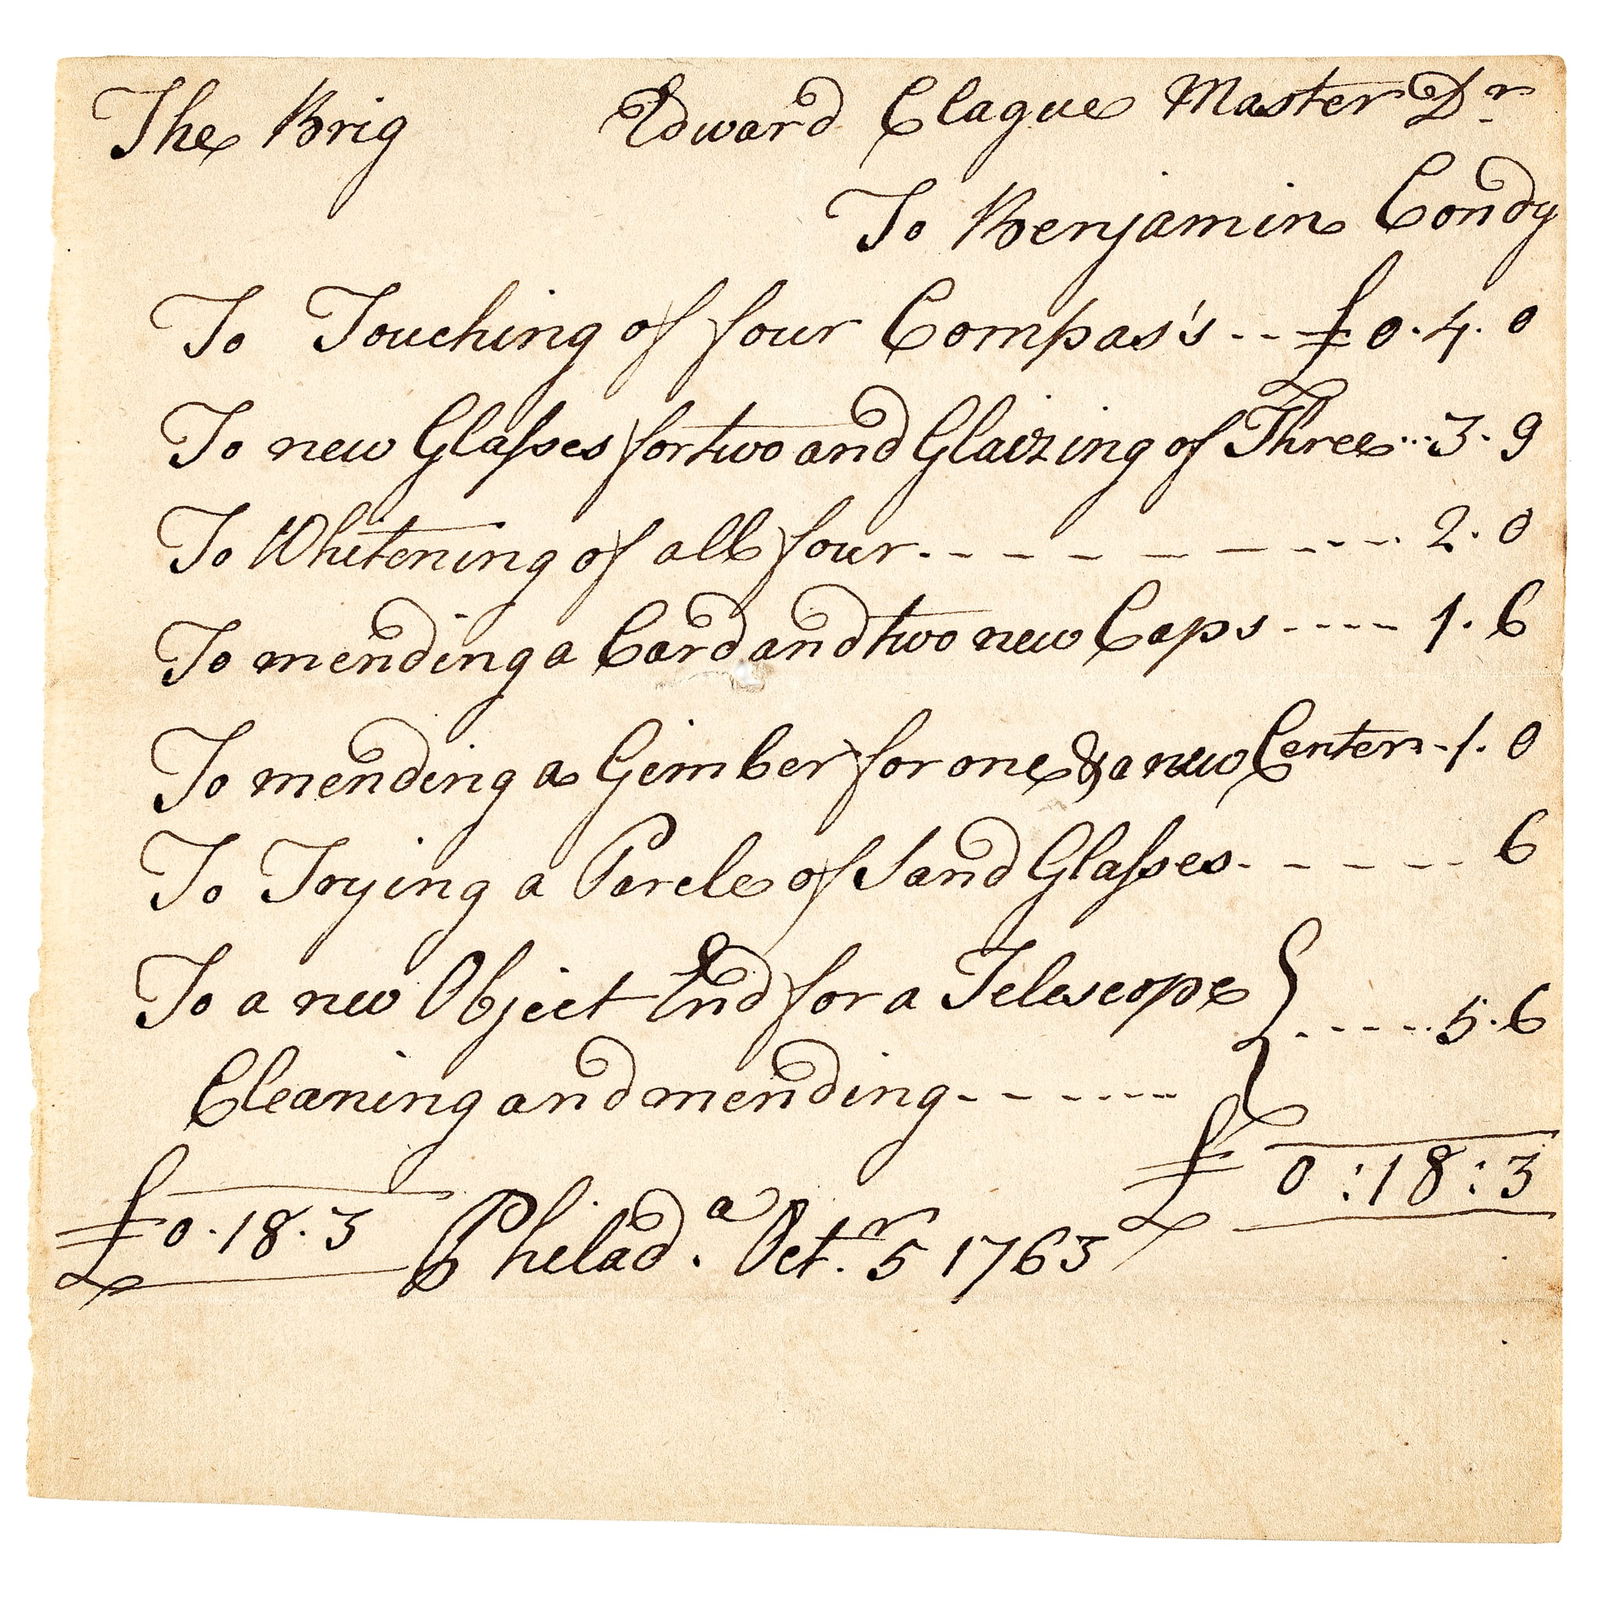 The Brig Edward Clague Master Dr
To Benjamin Condy
To Touching of four Compas's .. £0.4.0
To new Glasses for two and Glaizing of Three...3.9
To Whitening of all four.---------2.0
To mending a Card and two new Caps ---- 1.6
To mending a Gimber for one & a new Center--1.0
To Trying a Parcle of Sand Glasses.-----6
To a new Object End for a Telescope }.....5.6
Cleaning and mending.------
£ 0:18:3
£0.18.3 Philad.a Oct.r 5 1763